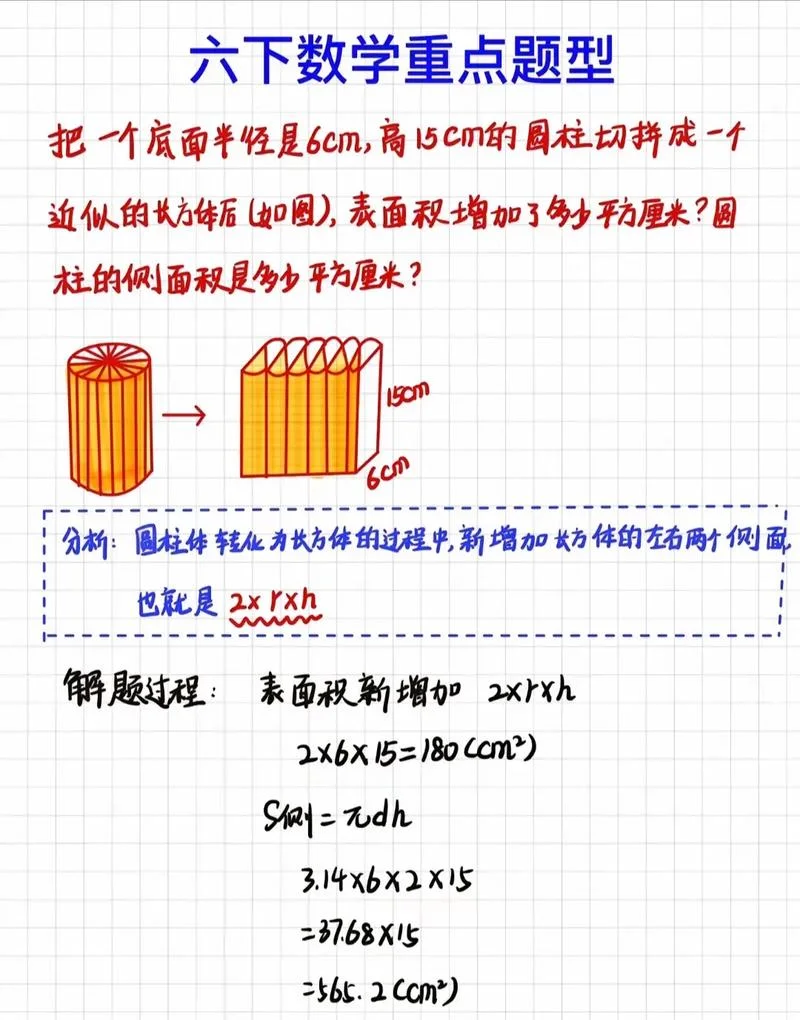 六下数学重点题型
把一个底面半径是6cm,高15cm的圆柱切拼成一个
近似的长方体后(如图),表面积增加了多少平方厘米?圆
柱的侧面积是多少平方厘米?
15cm
6cm
分析:圆柱体转化为长方体的过程中,新增加长方体的左右两个侧面,
也就是 2×r×h
解题过程: 表面积新增加 2×r×h
2×6×15=180(cm²)
S侧=πdh
3.14×6×2×15
=37.68×15
=565.2(cm²)